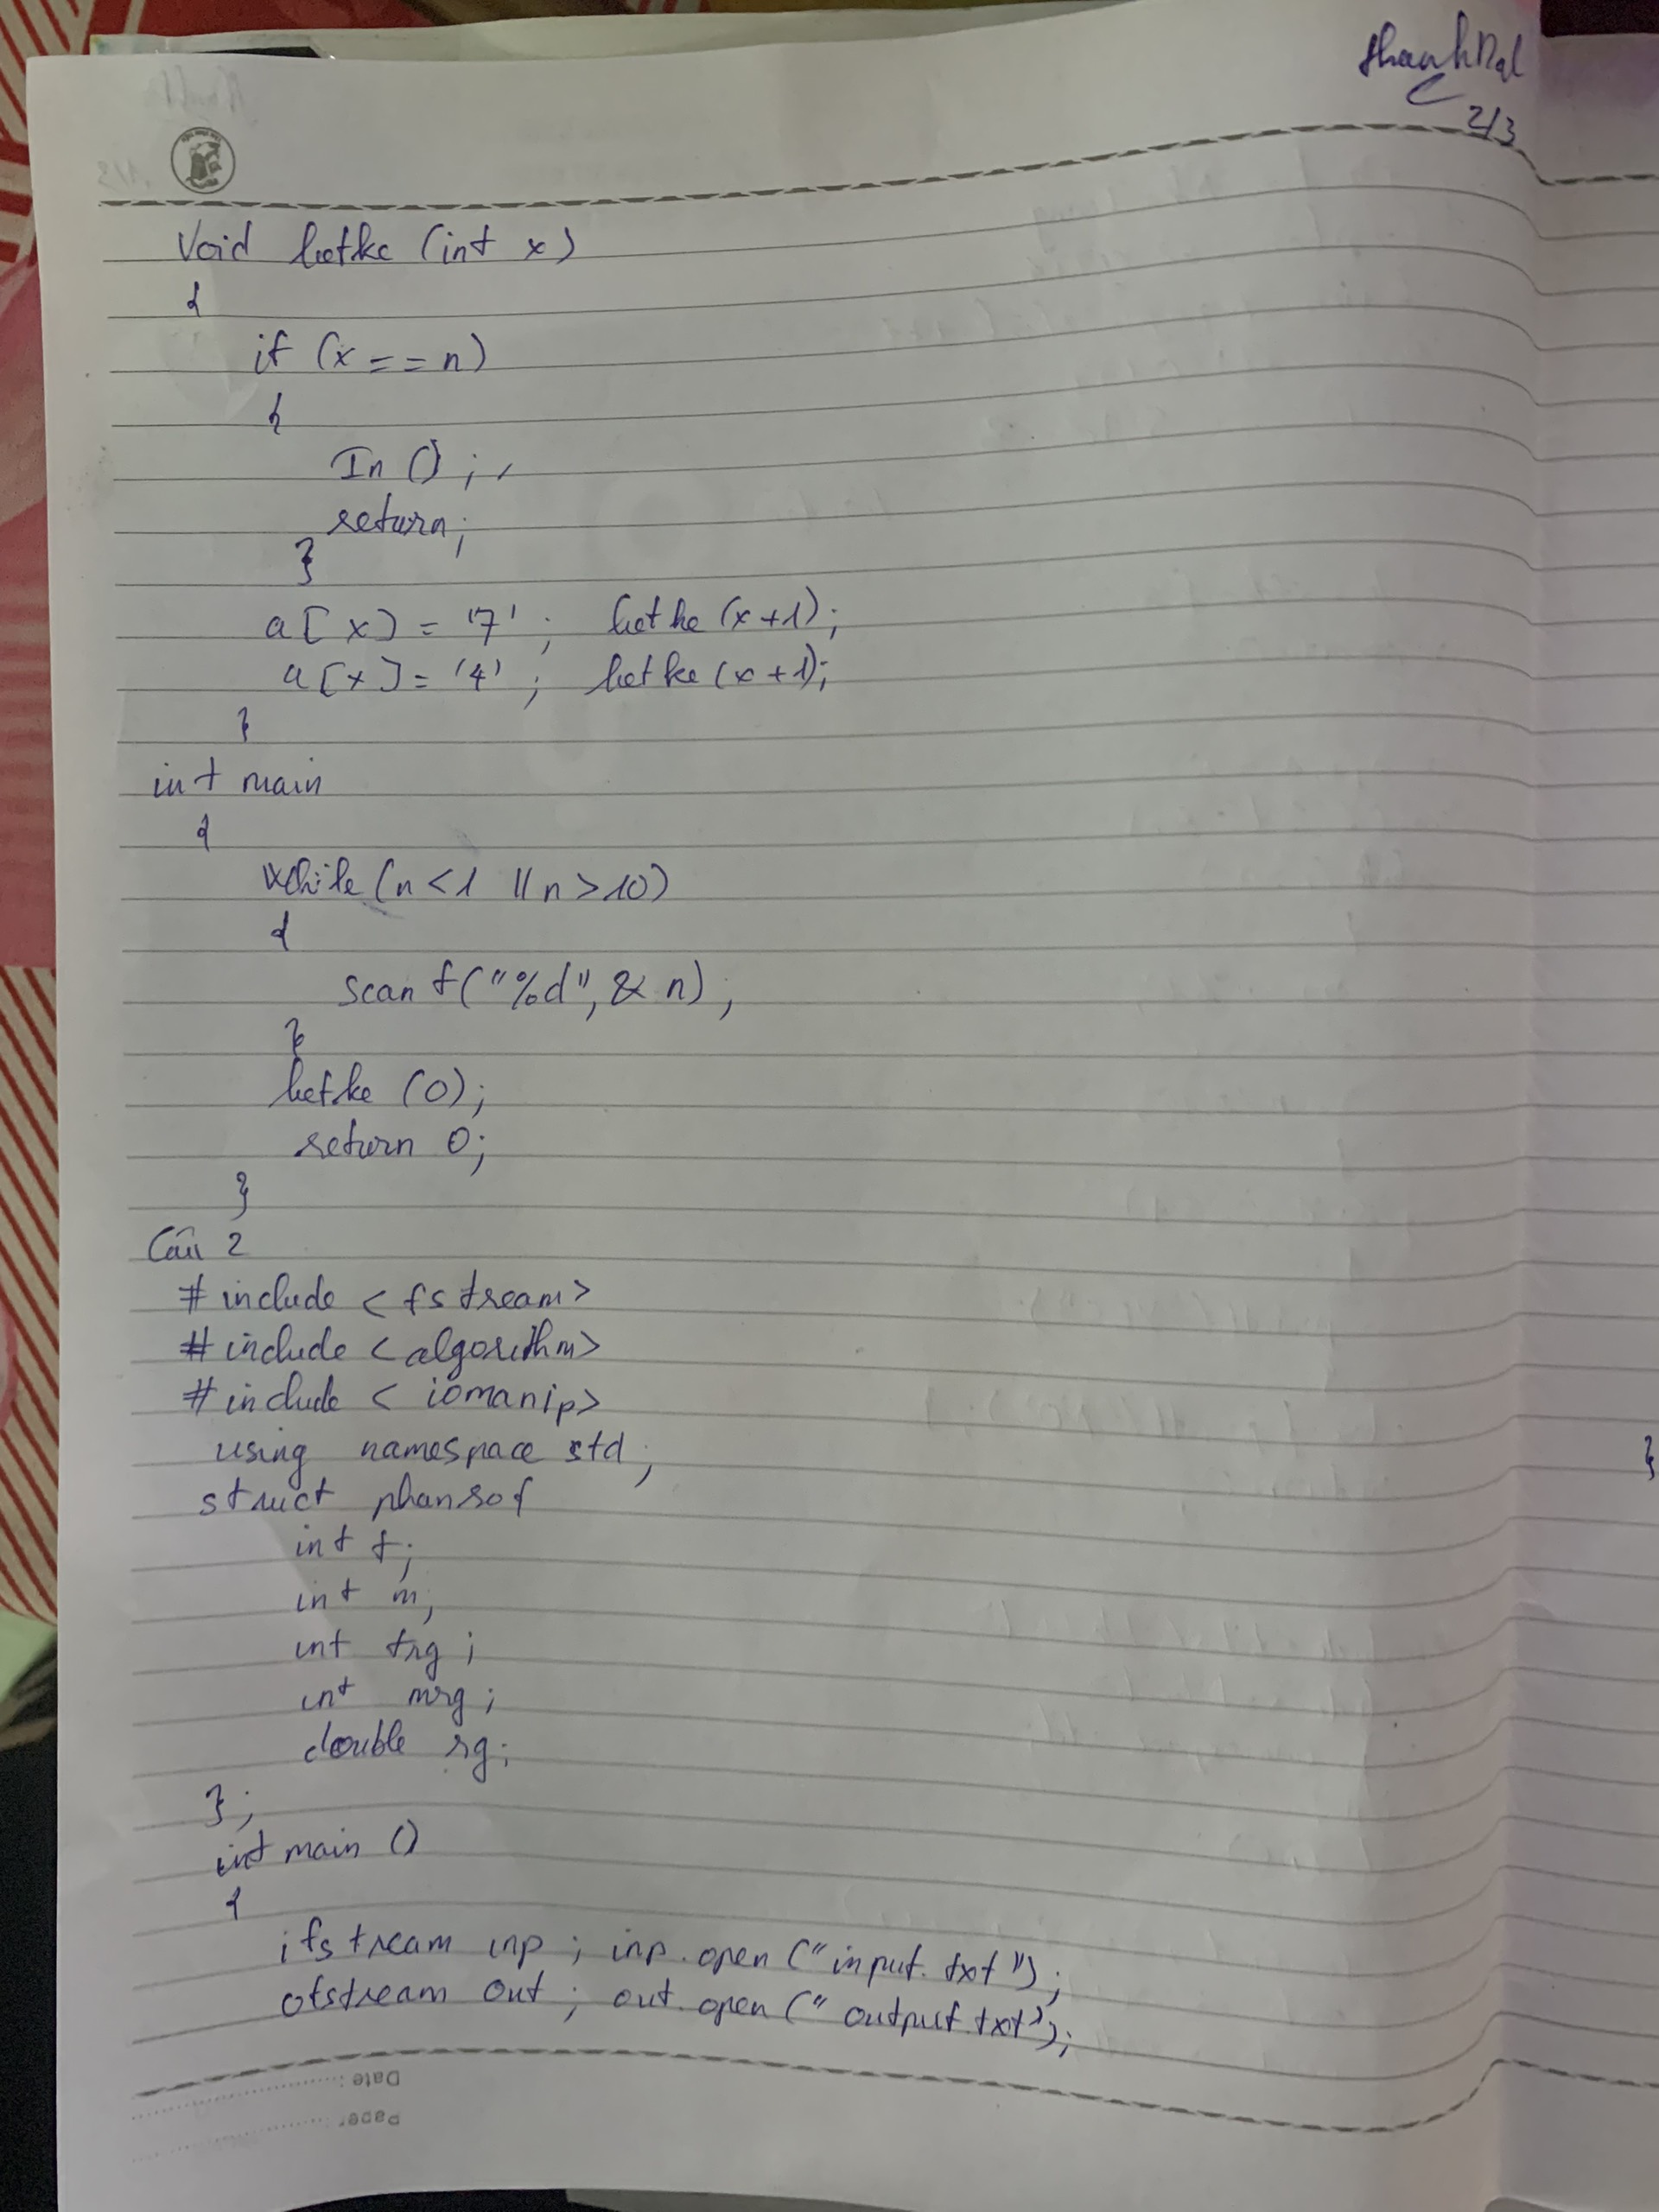 2/3
Void lietke (int x)
{
if (x == n)
{
In () ;
return;
}
a[x] = '7' ; lietke (x+1);
a[x] = '4' ; lietke (x+1);
}
int main
{
while (n <1 || n >10)
{
scanf("%d", & n) ;
}
lietke (0);
return 0;
}
Câu 2
# include < fstream>
# include <algorithm>
# include < iomanip>
using namespace std;
struct phanso{
int t;
int m;
int trg ;
int mrg ;
double rg;
};
int main ()
{
ifstream inp ; inp.open ("input.txt");
ofstream out ; out.open ("output.txt");
}
Date :
Page: